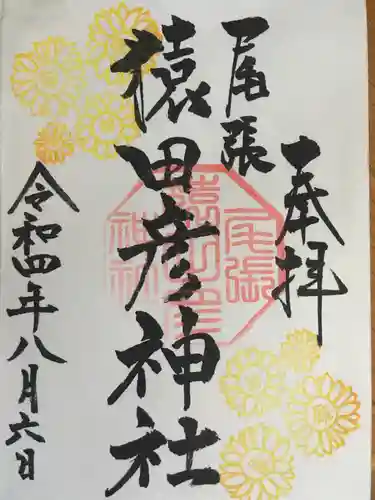 奉拝
尾張
猿田彦神社
令和四年八月六日
尾張
猿田彦
神社